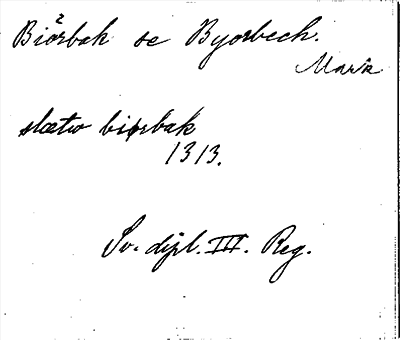 Biärbak se Byorbech.
Mark
slætw biærbak
1313.
Sv. dipl. III. Reg.